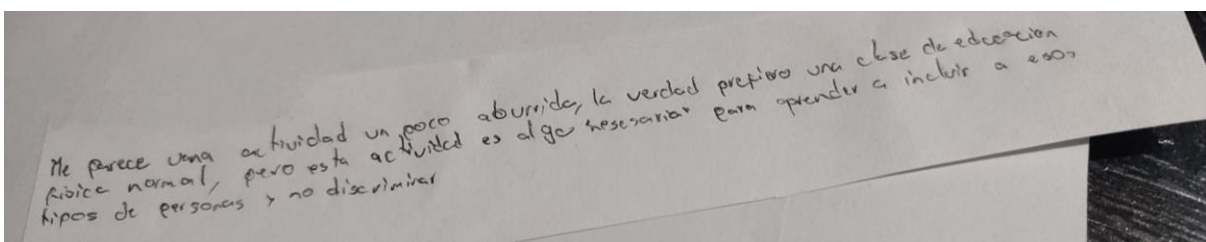 Me parece una actividad un poco aburrida, la verdad prefiero una clase de educacion
fisica normal, pero esta actividad es algo nesesariar para aprender a incluir a esos
tipos de personas y no discriminar